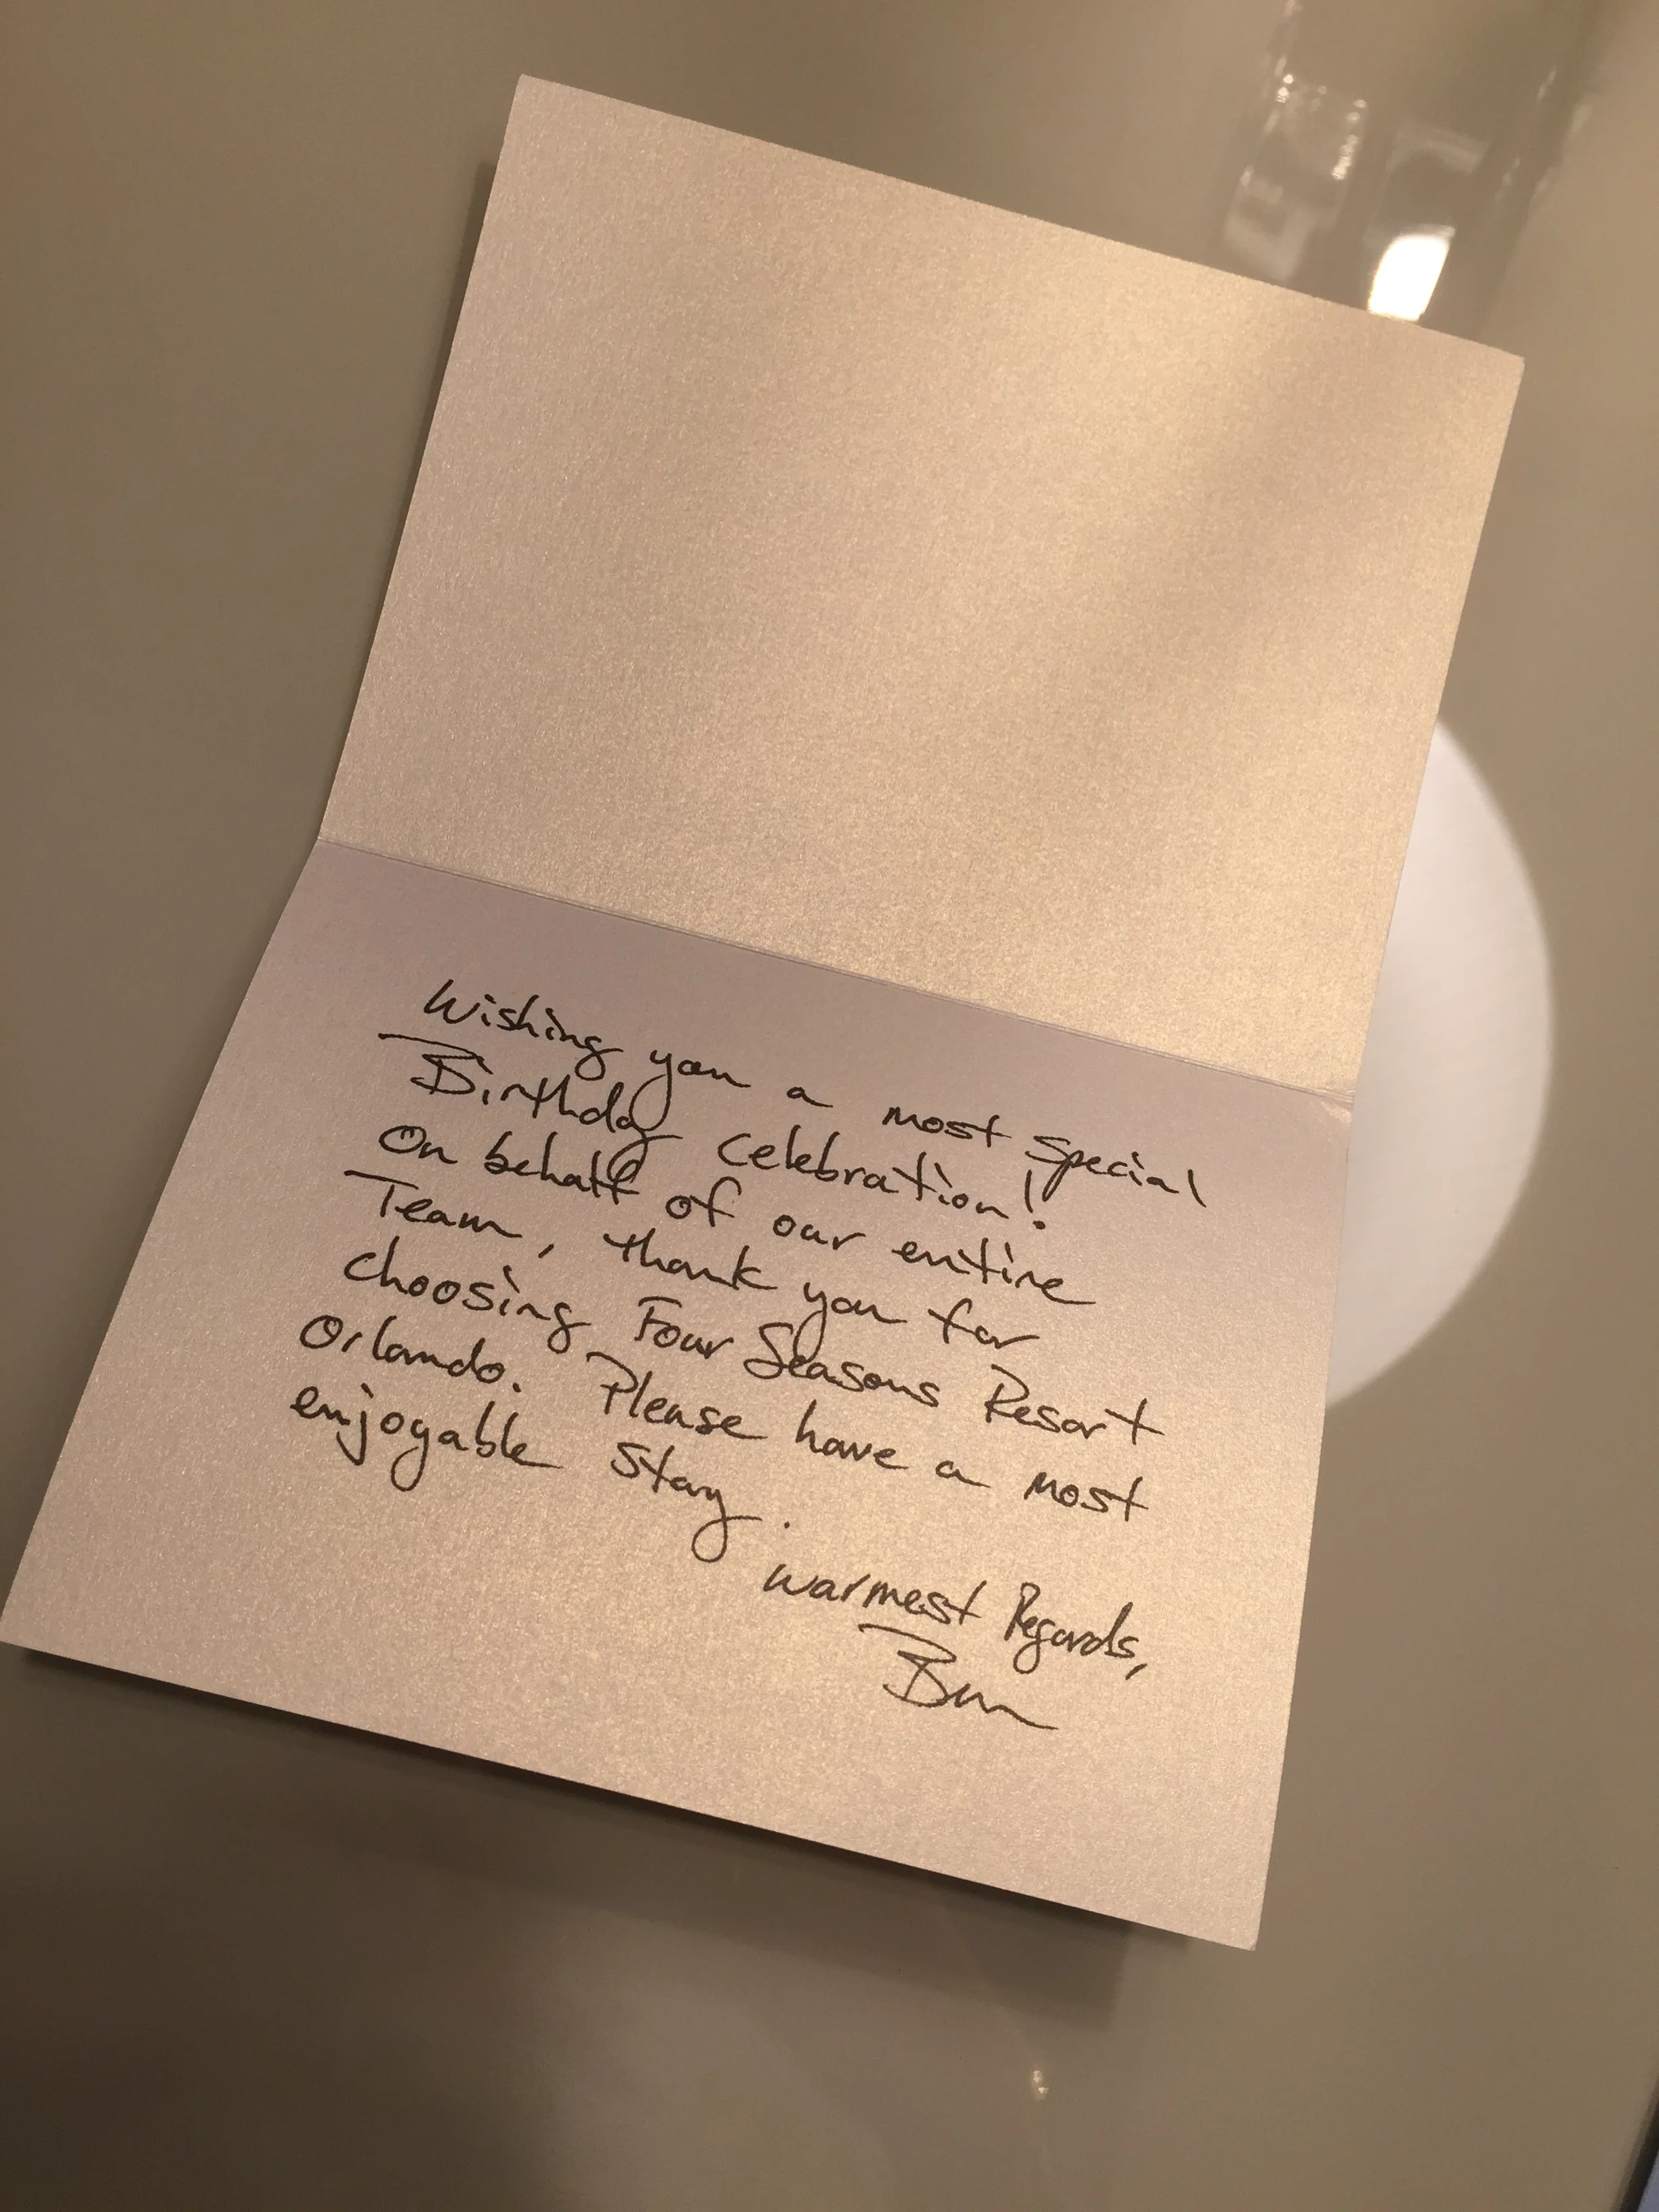 Wishing you a most special
Birthday celebration!
On behalf of our entire
Team, thank you for
choosing Four Seasons Resort
Orlando. Please have a most
enjoyable stay.
Warmest Regards,
Ben